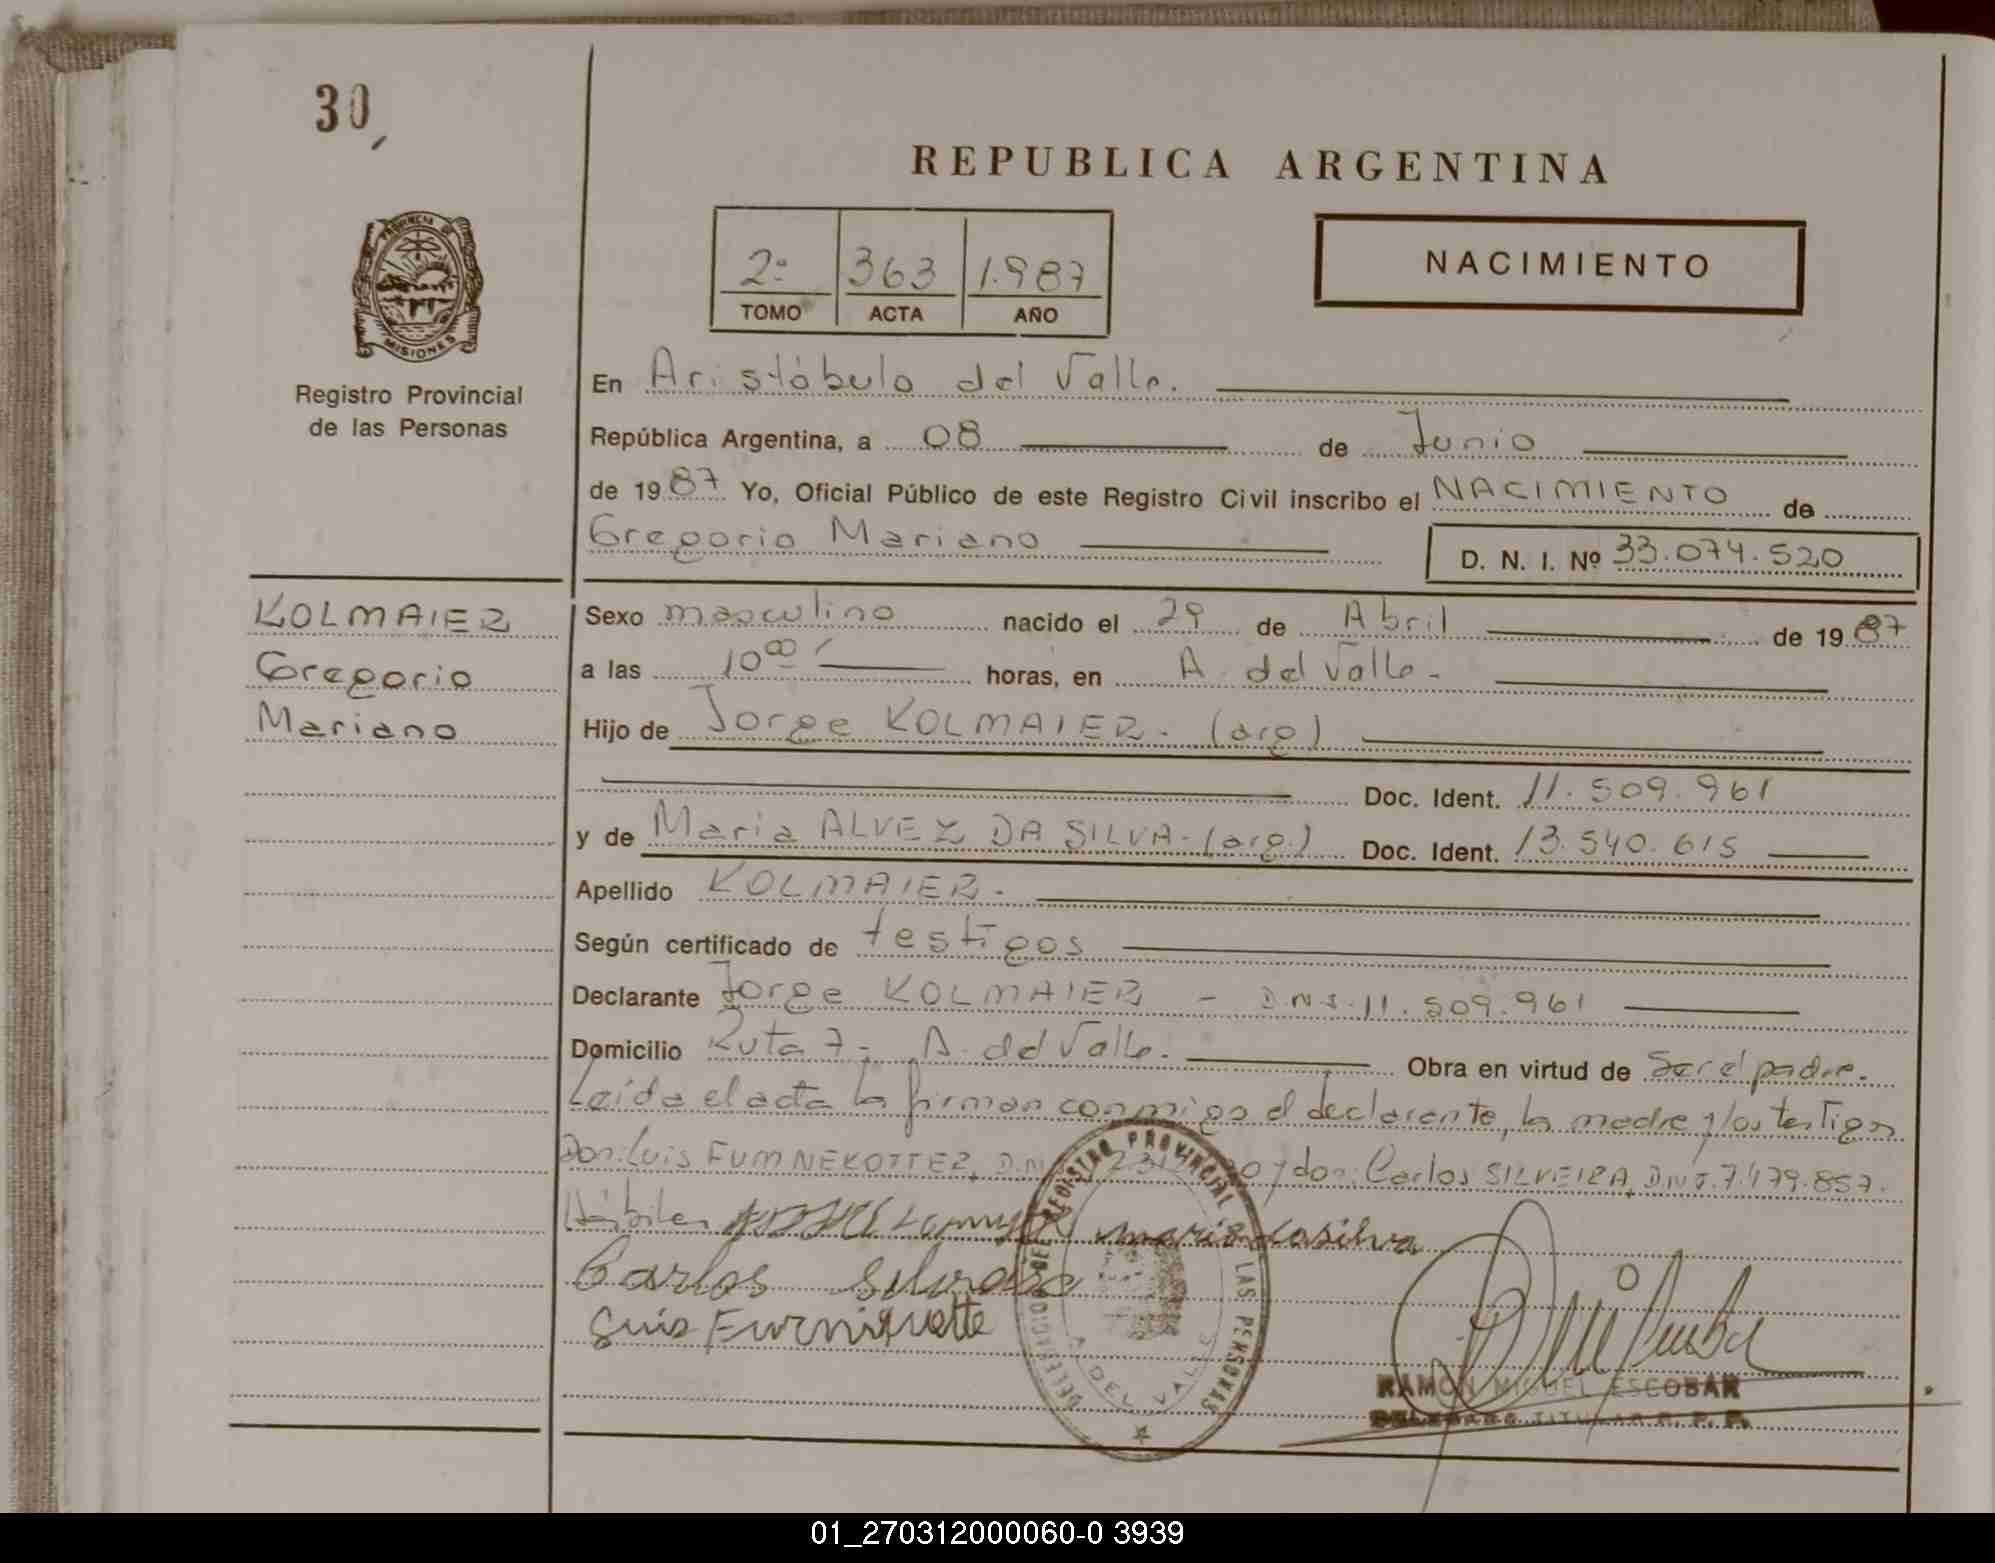 30
REPUBLICA ARGENTINA
PROVINCIA DE
MISIONES
Registro Provincial
de las Personas
2º 363 1.987
TOMO ACTA AÑO
NACIMIENTO
En Aristóbulo del Valle.
República Argentina, a 08 de Junio
de 1987 Yo, Oficial Público de este Registro Civil inscribo el NACIMIENTO de
Gregorio Mariano
D. N. I. Nº 33.074.520
KOLMAIER
Gregorio
Mariano
Sexo masculino nacido el 29 de Abril de 1987
a las 10 00 horas, en A. del Valle-
Hijo de Jorge KOLMAIER. (arg)
Doc. Ident. 11.509.961
y de Maria ALVEZ DA SILVA-(arg.) Doc. Ident. 13.540.615
Apellido KOLMAIER.
Según certificado de testigos
Declarante Jorge KOLMAIER - D.N.I. 11.509.961
Domicilio Ruta 7- A. del Valle. Obra en virtud de Ser el padre.
Leída el acta la firman conmigo el declarante, la madre y los testigos
Don: Luis D.N. y don: Carlos SILVEIRA, D.N.I. 7.479.857.
Hábiles maria dasilva
Carlos Silveira
Luis
DELEGACION DEL REGISTRO PROVINCIAL DE LAS PERSONAS
A. DEL VALLE
RAMON MIGUEL ESCOBAR
DELEGADO TITULAR R. P. P.
01_270312000060-0 3939